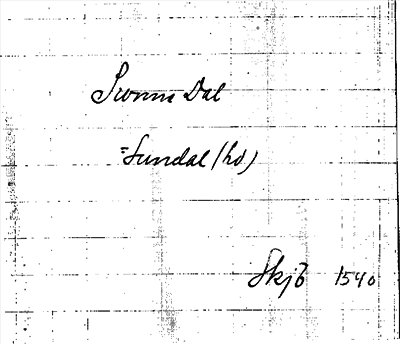 Swnn Dal
= Sundal (hd)
Skjb 1540